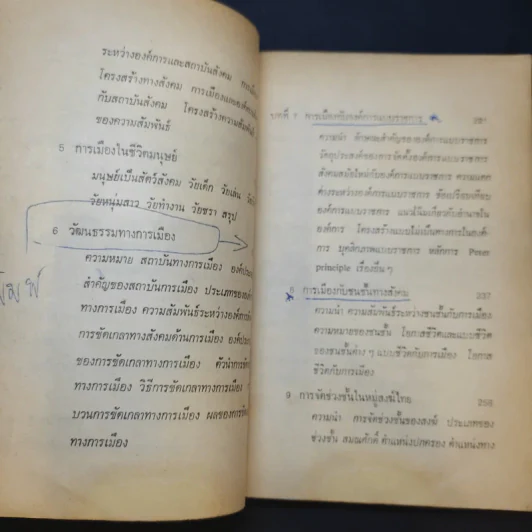 ระหว่างองค์การและสถาบันสังคม
โครงสร้างทางสังคม การเมืองและองค์การ
กับสถาบันสังคม โครงสร้างความสัมพันธ์
ของความสัมพันธ์
5 การเมืองในชีวิตมนุษย์
มนุษย์เป็นสัตว์สังคม วัยเด็ก วัยเล่น
วัยหนุ่มสาว วัยทำงาน วัยชรา สรุป
6 วัฒนธรรมทางการเมือง
ความหมาย สถาบันทางการเมือง
สำคัญของสถาบันการเมือง ประเภทของ
ทางการเมือง ความสัมพันธ์ระหว่าง
การขัดเกลาทางสังคมด้านการเมือง
ของการขัดเกลาทางการเมือง ตัวนำการ
ทางการเมือง วิธีการขัดเกลาทางการเมือง
บวนการขัดเกลาทางการเมือง ผลของการ
ทางการเมือง
บทที่ 7 การเมืองกับองค์การแบบราชการ
ความนำ ลักษณะสำคัญขององค์การแบบราชการ
วัตถุประสงค์ของการจัดตั้งองค์การแบบราชการ
สังคมสมัยใหม่กับองค์การแบบราชการ ความแตก
ต่างระหว่างองค์การแบบราชการ ข้อเปรียบเทียบ
องค์การแบบราชการ แนวโน้มเกี่ยวกับอำนาจใน
องค์การ โครงสร้างแบบไม่เป็นทางการในองค์-
การ บุคลิกภาพแบบราชการ หลักการ Peter
principle เรื่องอื่น ๆ
8 การเมืองกับชนชั้นทางสังคม 237
ความนำ ความสัมพันธ์ระหว่างชนชั้นกับการเมือง
ความหมายของชนชั้น โอกาสชีวิตและแบบชีวิต
ของชนชั้นต่าง ๆ แบบชีวิตกับการเมือง โอกาส
ชีวิตกับการเมือง
9 การจัดช่วงชั้นในหมู่สงฆ์ไทย 258
ความนำ การจัดช่วงชั้นของสงฆ์ ประเภทของ
ช่วงชั้น สมณศักดิ์ ตำแหน่งปกครอง ตำแหน่งทาง